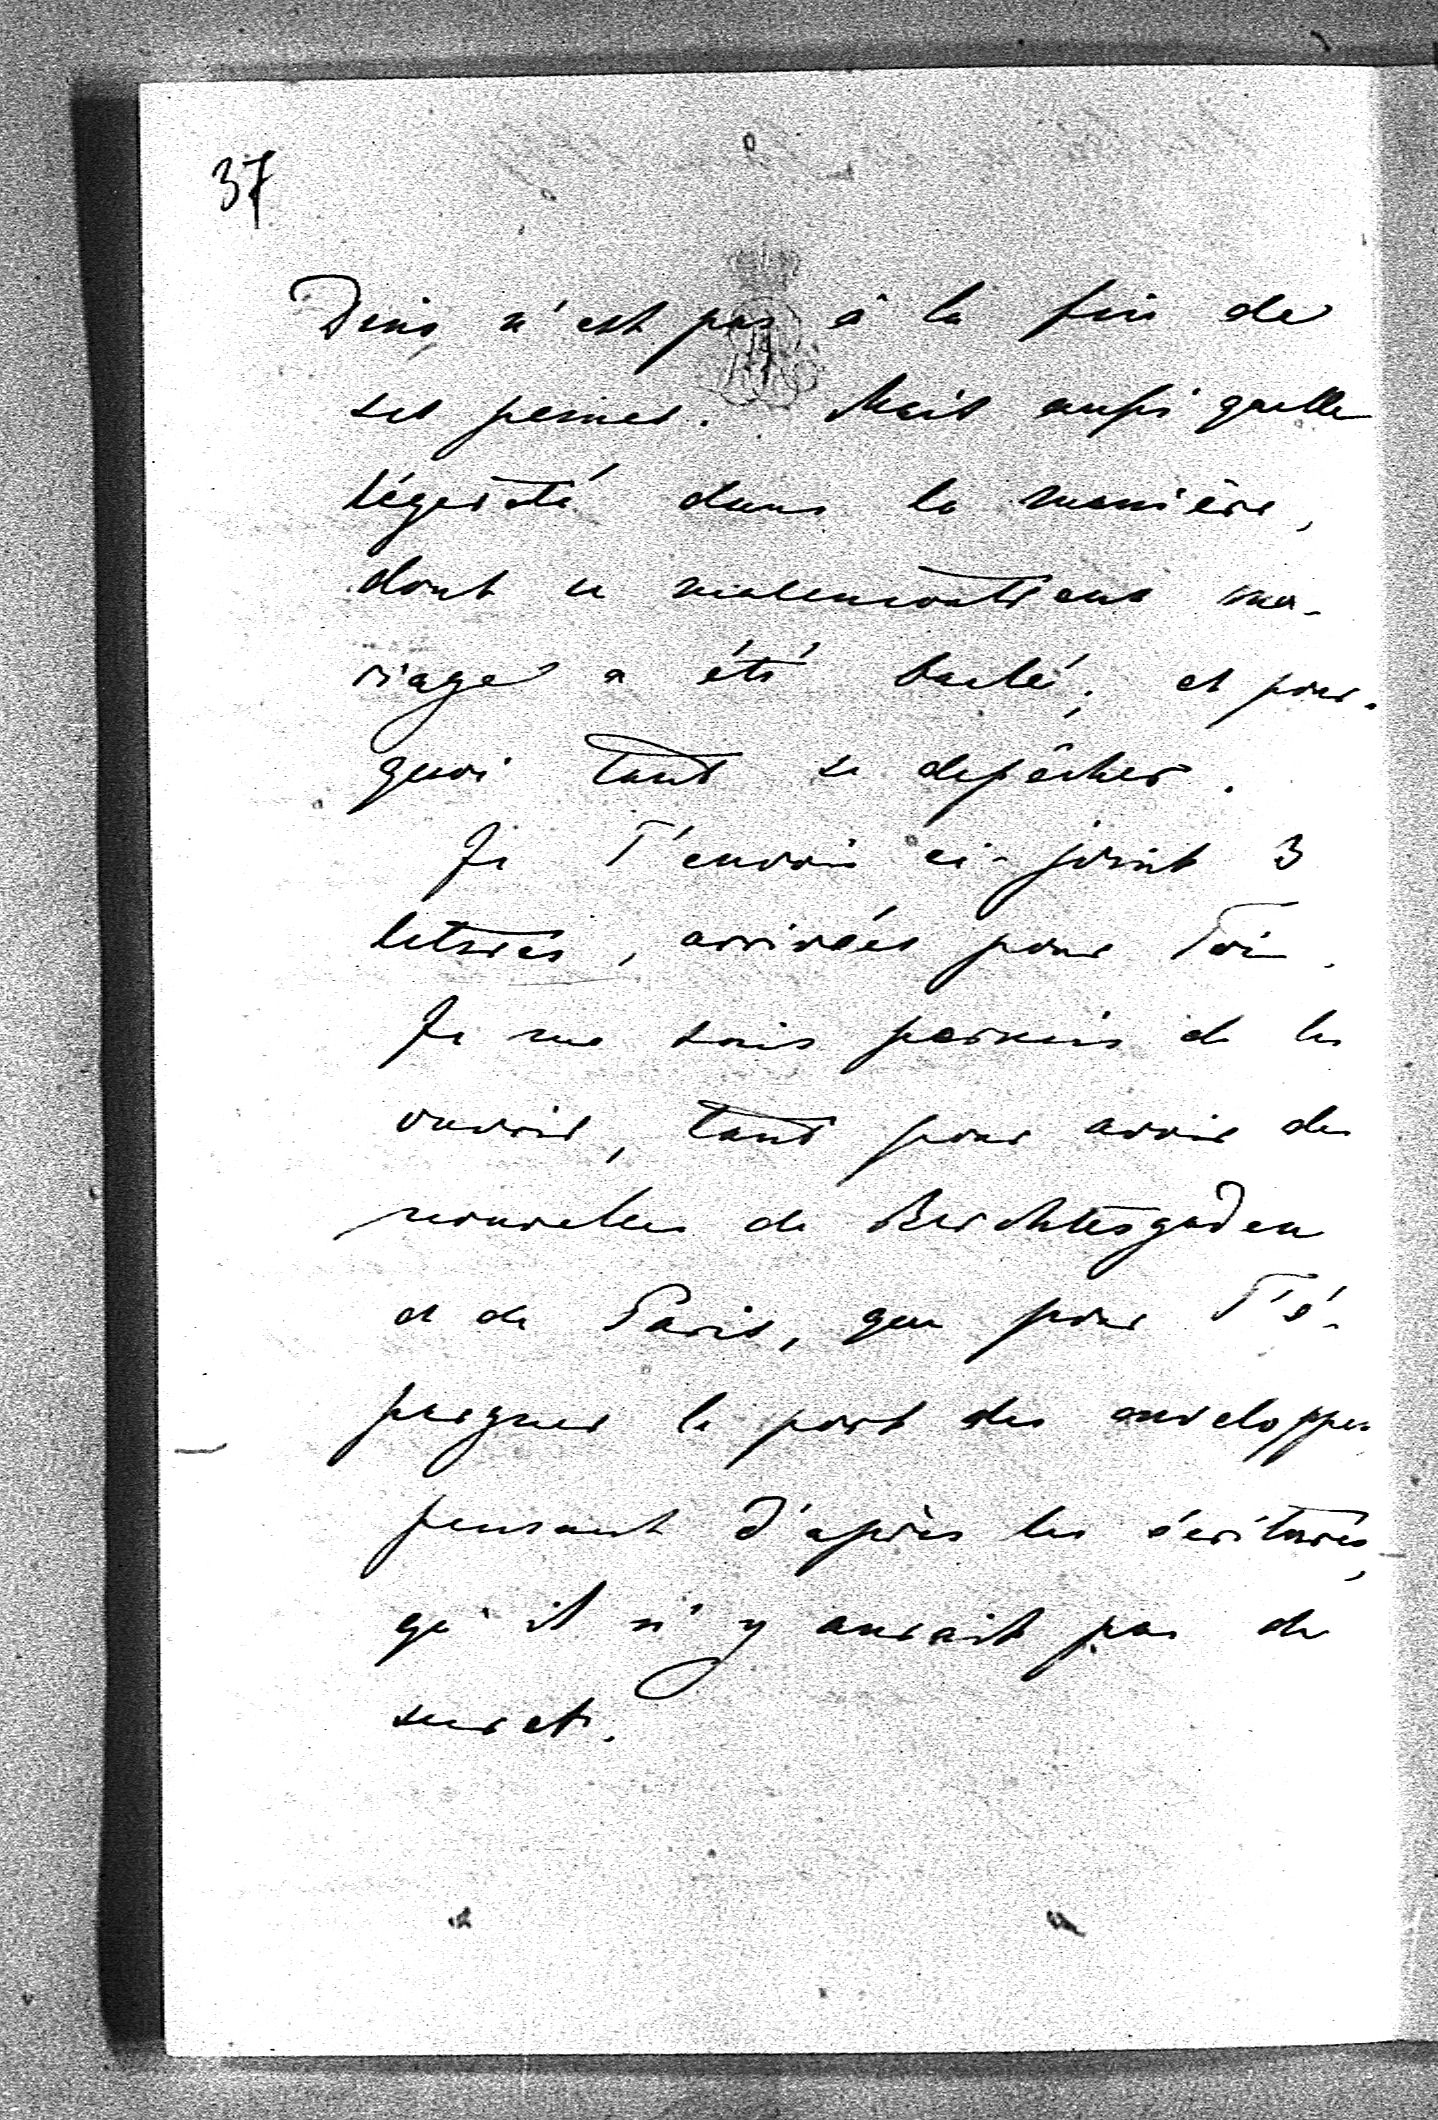 37
Dino n'est pas à la fin de
ses peines. Mais aussi quelle
légèreté dans la manière,
dont ce malencontreux ma-
riage a été baclé; et pour-
quoi tant se depêcher.
Je T'envoie ci-joint 3
lettres, arrivées pour Toi.
Je me suis permis de les
ouvrir, tant pour avoir des
nouvelles de Berchtesgaden
et de Paris, que pour T'é-
pargner le port des enveloppes
pensant d'après les écritures,
qu'il n'y aurait pas de
secret.